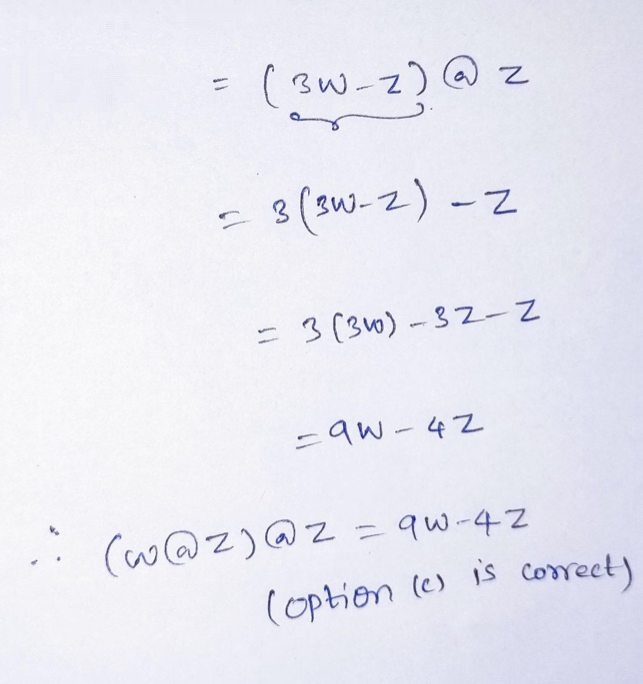 = (3w-z) @ z
= 3(3w-z) - z
= 3(3w) - 3z - z
= 9w - 4z
∴ (w@z)@z = 9w-4z
(option (c) is correct)